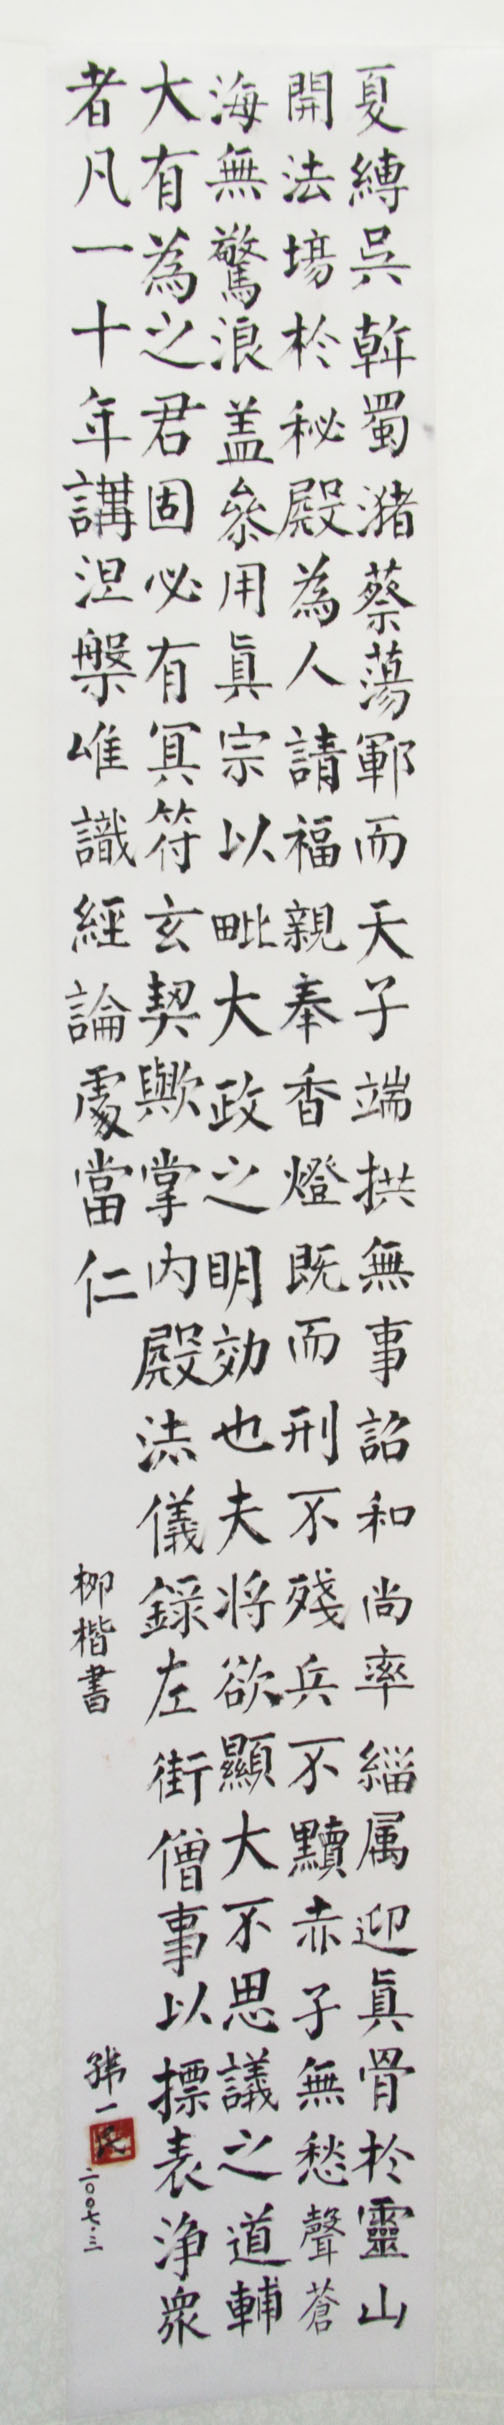 夏縛吳斡蜀瀦蔡蕩鄆而天子端拱無事詔和尚率緇属迎眞骨於靈山
開法場於秘殿為人請福親奉香燈既而刑不殘兵不黷赤子無愁聲蒼
海無驚浪盖叅用眞宗以毗大政之明効也夫将欲顯大不思議之道輔
大有為之君固必有冥符玄契歟掌內殿法儀錄左街僧事以摽表淨眾
者凡一十年講涅槃唯識經論處當仁
柳楷書
二〇〇七.三